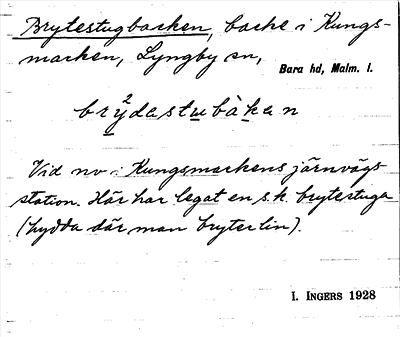 Brytestugbacken, backe i Kungs-
marken, Lyngby sn,
Bara hd, Malm. l.
brýdastubàkan
Vid nv i Kungsmarkens järnvägs
station. Här har legat en s.k. brytestuga
(hydda där man bryter lin).
I. INGERS 1928